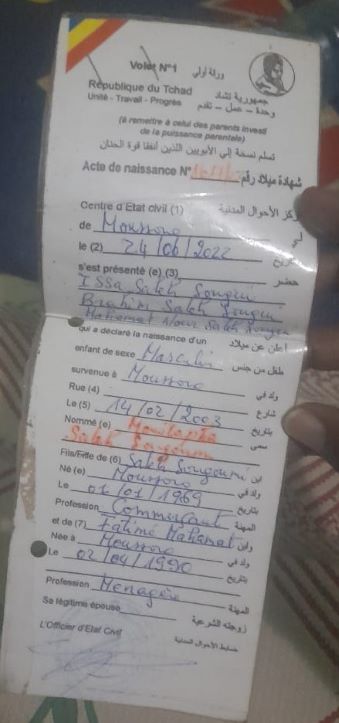 Volet N°1 ورقة أولى
République du Tchad جمهورية تشاد
Unité - Travail - Progrès وحدة – عمل – تقدم
(à remettre à celui des parents investi
de la puissance parentale)
تسلم نسخة إلى الأبوين اللذين
Acte de naissance N° شهادة ميلاد رقم
Centre d'Etat civil (1) مركز الأحوال المدنية
de Moussoro في
le (2) 24/06/2022 بتاريخ
s'est présenté (e) (3) حضر
Issa Saleh Songui
Brahim Saleh
Mahamat Nour Saleh
qui a déclaré la naissance d'un أعلن عن ميلاد
enfant de sexe Masculin طفل من جنس
survenue à Moussoro ولد في
Rue (4) شارع
Le (5) 14/02/2003 بتاريخ
Nommé (e) Moustapha سمي
Saleh
Fils/Fille de (6) Saleh ابن
Né (e) Moussoro ولد في
Le 01/01/1969 بتاريخ
Profession Commerçant المهنة
et de (7) Fatimé Mahamat وابن
Née à Moussoro ولد في
Le 02/04/1990 بتاريخ
Profession Menagère المهنة
Sa légitime épouse زوجته الشرعية
L'Officier d'Etat Civil ضابط الأحوال المدنية